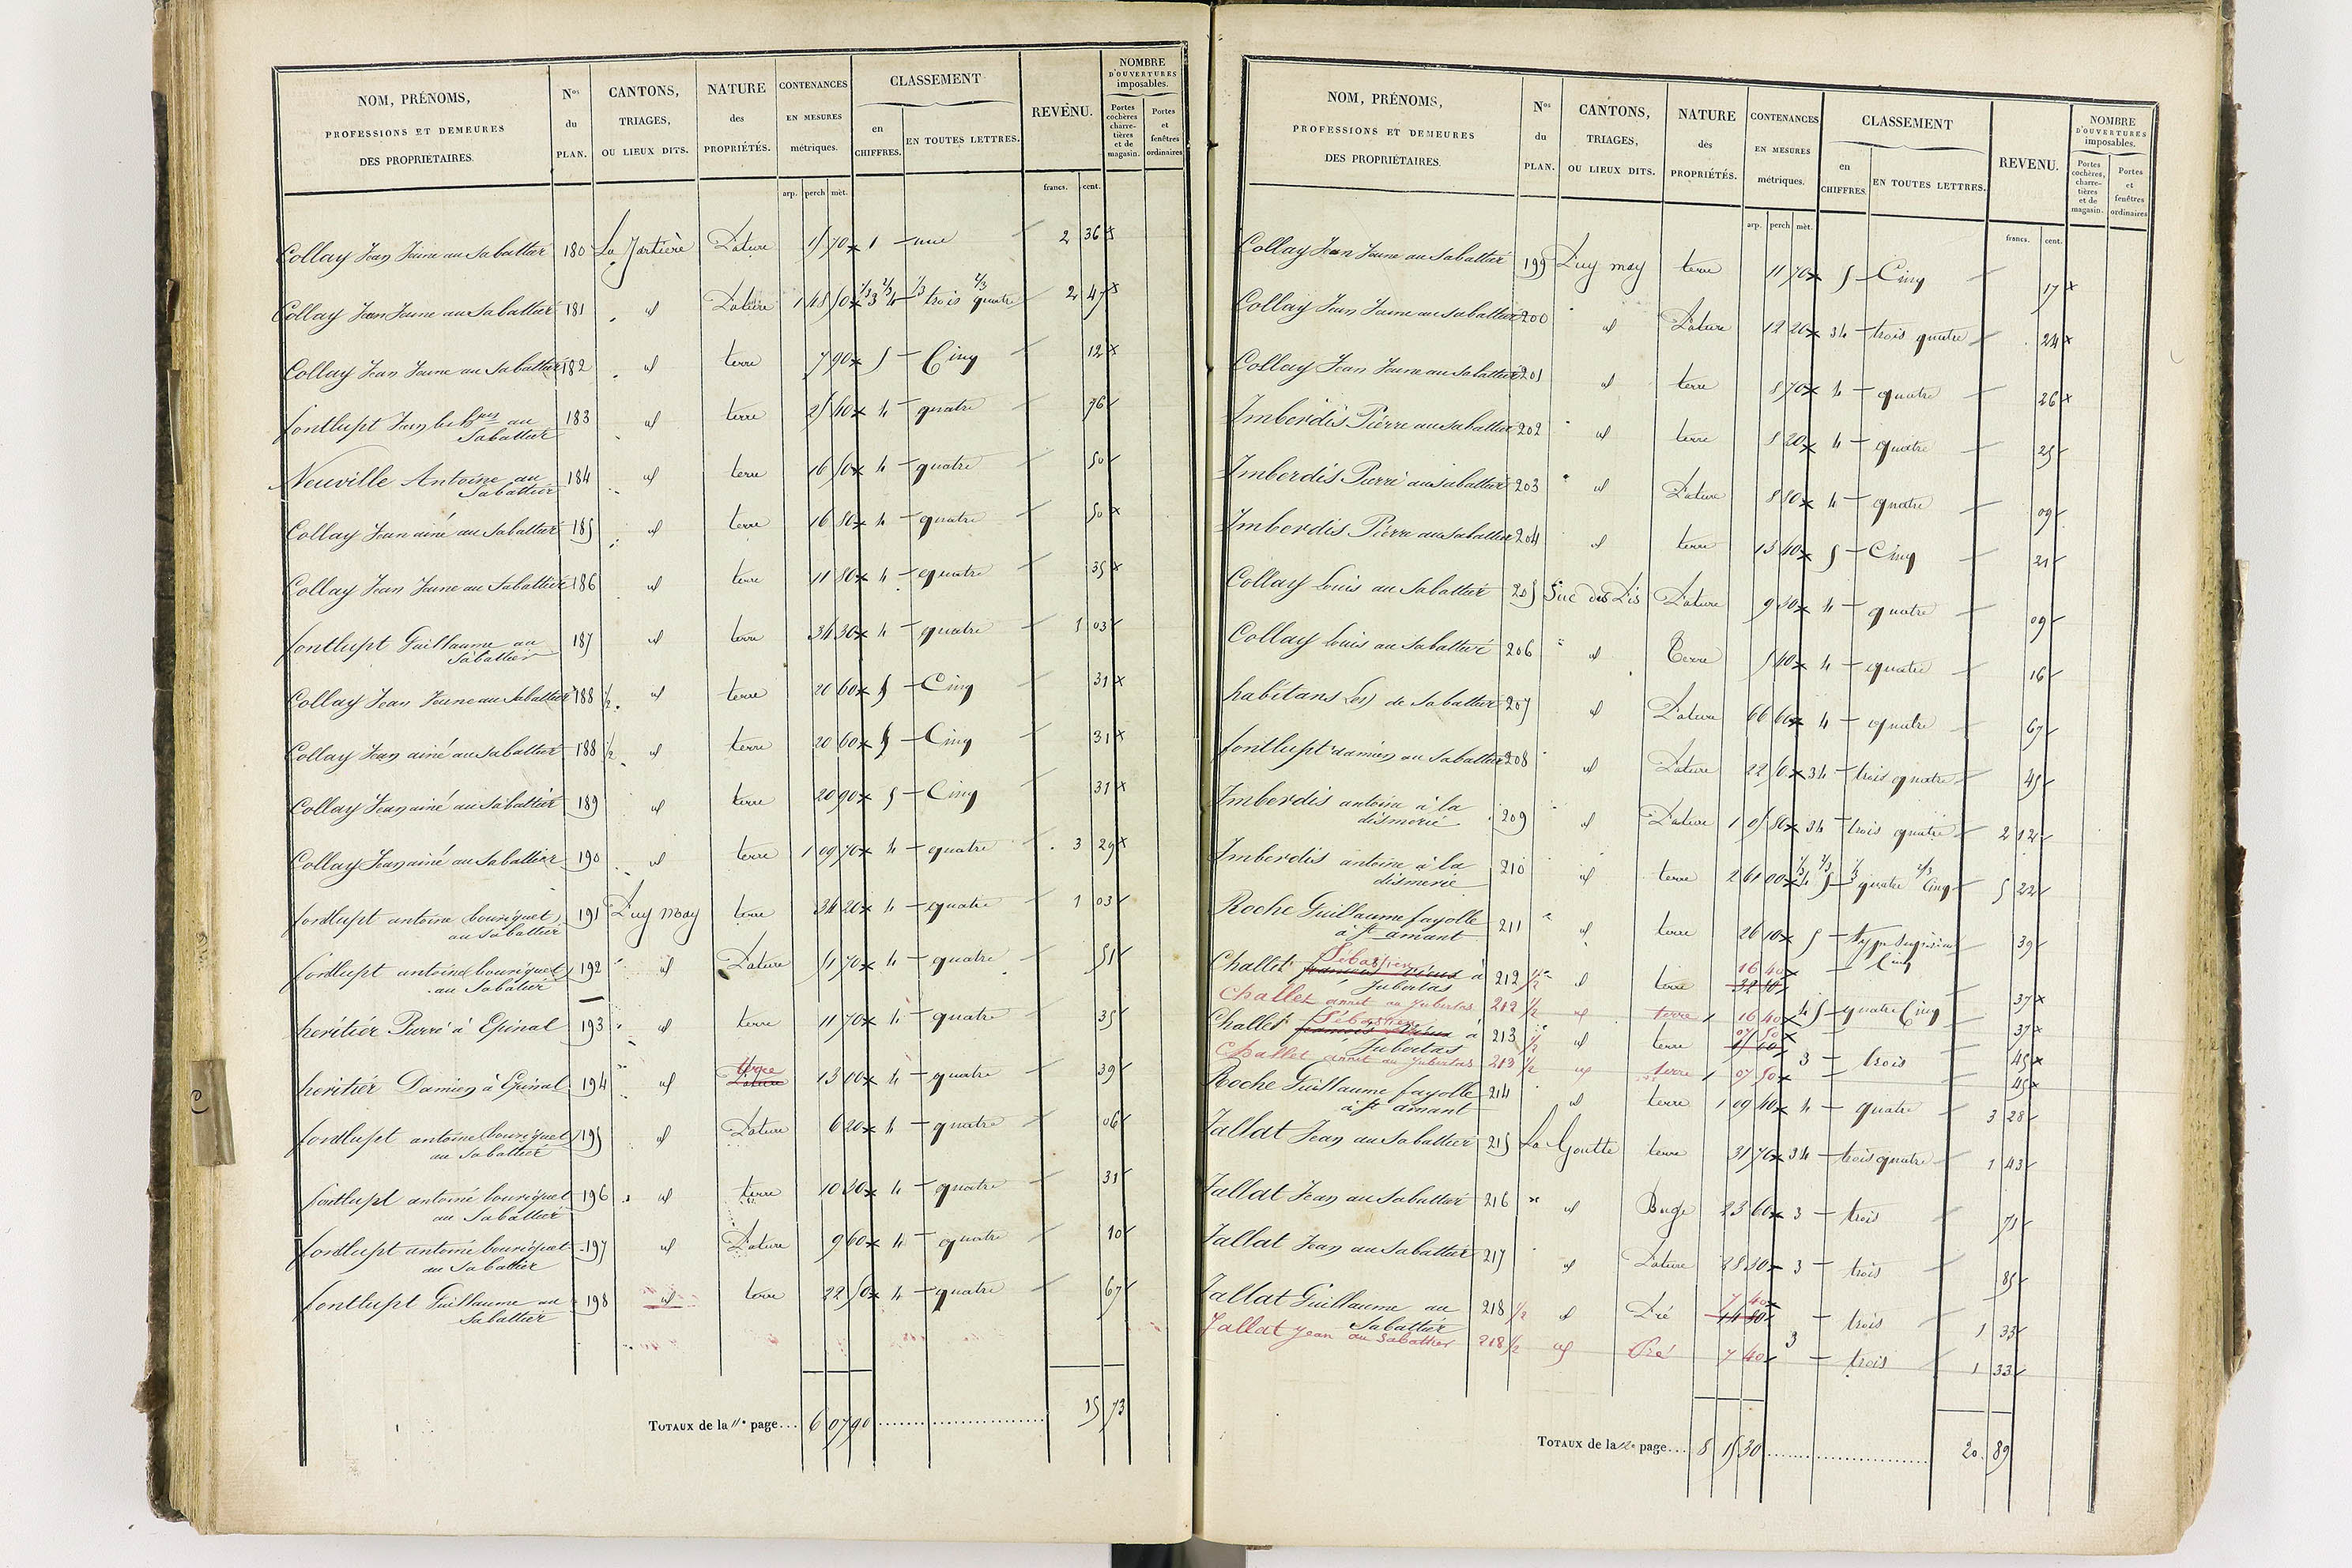 NOM, PRÉNOMS, PROFESSIONS ET DEMEURES DES PROPRIETAIRES. Nos du PLAN. CANTONS, TRIAGES, OU LIEUX DITS. NATURE des PROPRIÉTÉS. CONTENANCES EN MESURES métriques. CLASSEMENT en CHIFFRES. EN TOUTES LETTRES. REVENU. NOMBRE D'OUVERTURES imposables. Portes cochères charretières et de magasin. Portes et fenêtres ordinaires
arp. perch mèt. francs. cent.
Collay Jean Jeune au Sabattier 180 Pature 1 une 2 36 x
Collay Jean Jeune au Sabattier 181 id Pature 1/3 3 2/3 4 1/3 trois 2/3 quatre 2 47 x
Collay Jean Jeune au Sabattier 182 id terre 7 90 x 5 Cinq 12 x
fontlupt au Sabattier 183 id terre 25 40 x 4 quatre 76
Neuville Antoine au Sabattier 184 id terre 16 50 x 4 quatre 50
Collay Jean ainé au Sabattier 185 id terre 16 80 x 4 quatre 50 x
Collay Jean Jeune au Sabattier 186 id terre 11 80 x 4 quatre 35 x
fontlupt Guillaume au Sabattier 187 id terre 34 30 x 4 quatre 1 03
Collay Jean Jeune au Sabattier 188 1/2 id terre 20 60 x 5 Cinq 31 x
Collay Jean ainé au Sabattier 188 1/2 id terre 20 60 x 5 Cinq 31 x
Collay Jean ainé au Sabattier 189 id terre 20 90 x 5 Cinq 31 x
Collay Jean ainé au Sabattier 190 id terre 1 09 70 x 4 quatre 3 29 x
fontlupt antoine bouriquet au Sabattier 191 Puy may terre 34 20 x 4 quatre 1 03
fontlupt antoine bouriquet au Sabatier 192 id Pature 51 70 x 4 quatre 51
heritier Pierre à Epinal 193 id terre 11 70 x 4 quatre 35
heritier Damien à Epinal 194 id terre Pature 13 00 x 4 quatre 39
fontlupt antoine bouriquet au Sabattier 195 id Pature 6 20 x 4 quatre 06
fontlupt antoine bouriquet au Sabattier 196 id terre 10 30 x 4 quatre 31
fontlupt antoine bouriquet au Sabattier 197 id Pature 9 60 x 4 quatre 10
fontlupt Guillaume au Sabattier 198 id terre 22 50 x 4 quatre 67
TOTAUX de la 11e page.... 6 07 90 15 73
NOM, PRÉNOMS, PROFESSIONS ET DEMEURES DES PROPRIÉTAIRES. Nos du PLAN. CANTONS, TRIAGES, OU LIEUX DITS. NATURE des PROPRIÉTÉS. CONTENANCES EN MESURES métriques. CLASSEMENT en CHIFFRES. EN TOUTES LETTRES. REVENU. NOMBRE D'OUVERTURES imposables. Portes cochères, charretières et de magasin. Portes et fenêtres ordinaires
arp. perch mèt. francs. cent.
Collay Jean Jeune au Sabattier 199 Puy may terre 11 70 x 5 Cinq 17 x
Collay Jean Jeune au Sabattier 200 id Pature 12 20 x 34 trois quatre 24 x
Collay Jean Jeune au Sabattier 201 id terre 8 70 x 4 quatre 26 x
Imberdis Pierre au Sabattier 202 id terre 8 20 x 4 quatre 25
Imberdis Pierre au Sabattier 203 id Pature 8 80 x 4 quatre 09
Imberdis Pierre au Sabattier 204 id terre 13 40 x 5 Cinq 21
Collay Louis au Sabattier 205 Suc des Pature 9 30 x 4 quatre 09
Collay Louis au Sabattier 206 id Terre 5 40 x 4 quatre 16
habitans (les) de Sabattier 207 id Pature 66 60 x 4 quatre 67
fontlupt damien au Sabattier 208 id Pature 34 trois quatre 45
Imberdis antoine à la dismerie 209 id Pature 1 05 80 x 34 trois quatre 2 12
Imberdis antoine à la dismerie 210 id terre 2 61 00 x 1/3 4 2/3 5 1/3 quatre 2/3 Cinq 5 22
Roche Guillaume fayolle à St amant 211 id terre 26 10 x 5 Cinq 39
Challet Sébastien à Jubertas 212 1/2 id terre 16 40 x 37 x
Challet annet au Jubertas 212 1/2 id terre 16 40 x 45 quatre Cinq 37 x
Challet Sébastien à Jubertas 213 1/2 id terre 07 50 x 45 x
Challet annet au Jubertas 213 1/2 id terre 07 50 x 3 trois 45 x
Roche Guillaume fayolle à St amant 214 id terre 1 09 40 x 4 quatre 3 28
Tallat Jean au Sabattier 215 La Goutte terre 31 70 x 34 trois quatre 1 43
Tallat Jean au Sabattier 216 id Buge 23 60 x 3 trois 71
Tallat Jean au Sabattier 217 id Pature 28 30 x 3 trois 85
Tallat Guillaume au Sabattier 218 1/2 id Pré 7 40 x 14 80 trois 1 33
Tallat Jean au Sabattier 218 1/2 id Pré 7 40 3 trois 1 33
TOTAUX de la 12e page.... 8 15 30 20 89